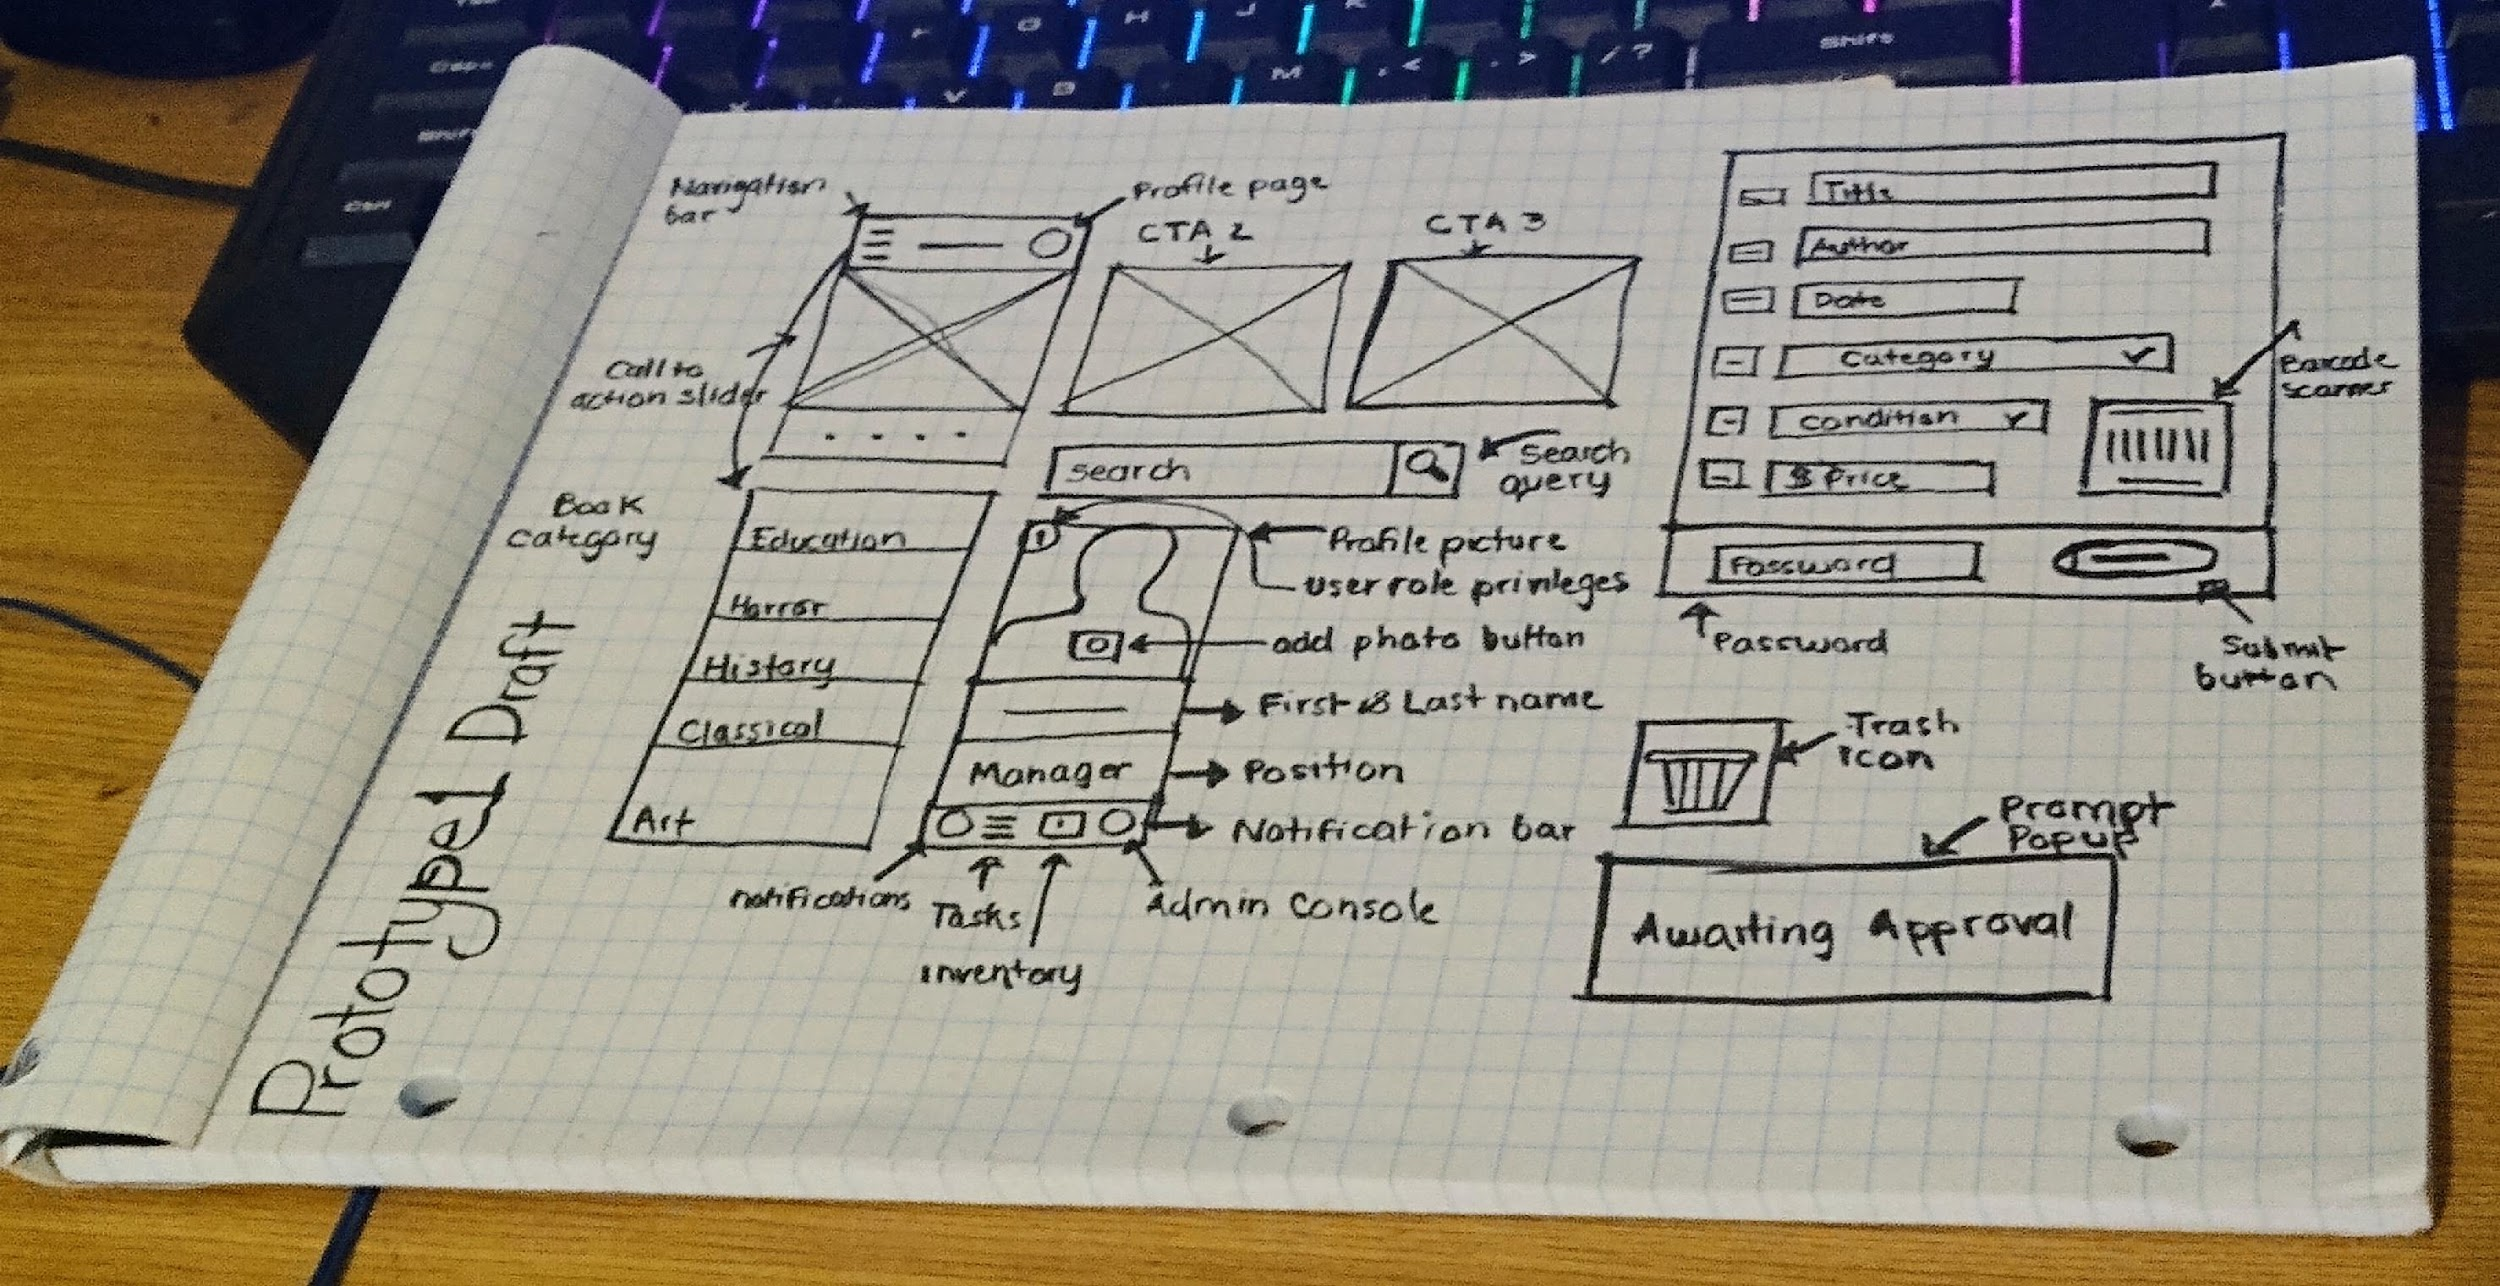 Prototyped Draft
Navigation
bar
Profile page
CTA 2
CTA 3
Call to
action slider
Search
Search
query
Book
category
Education
Horror
History
Classical
Art
Profile picture
user role privileges
add photo button
First & Last name
Manager
Position
Notification bar
notifications
Tasks
Inventory
Admin Console
Title
Author
Date
Category
Condition
$ Price
Barcode
scanner
Password
Password
Submit
button
Trash
icon
Prompt
Popup
Awaiting Approval
Shift
M
, <
. >
/ ?
V
B
H
J
G